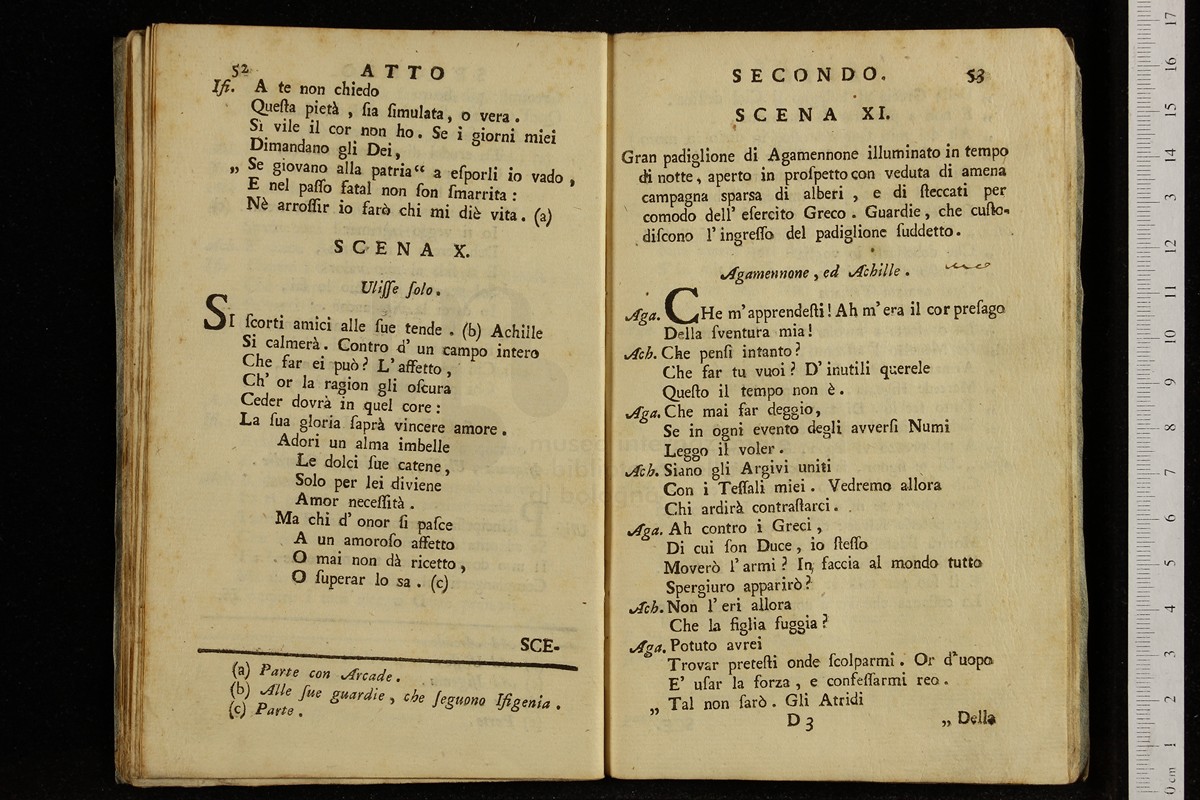 52 ATTO
Ifi. A te non chiedo
Queſta pietà , ſia ſimulata, o vera .
Sì vile il cor non ho. Se i giorni miei
Dimandano gli Dei,
„ Se giovano alla patria“ a eſporli io vado ,
E nel paſſo fatal non ſon ſmarrita :
Nè arroſſir io farò chi mi diè vita. (a)
SCENA X.
Uliſſe ſolo .
SI ſcorti amici alle ſue tende . (b) Achille
Si calmerà. Contro d' un campo intero
Che far ei può? L' affetto ,
Ch' or la ragion gli oſcura
Ceder dovrà in quel core :
La ſua gloria ſaprà vincere amore .
Adori un alma imbelle
Le dolci ſue catene ,
Solo per lei diviene
Amor neceſſità .
Ma chi d' onor ſi paſce
A un amoroſo affetto
O mai non dà ricetto ,
O ſuperar lo sa . (c)
SCE-
(a) Parte con Arcade .
(b) Alle ſue guardie , che ſeguono Ifigenia .
(c) Parte .
SECONDO. 53
SCENA XI.
Gran padiglione di Agamennone illuminato in tempo
di notte , aperto in proſpetto con veduta di amena
campagna sparsa di alberi , e di ſteccati per
comodo dell' eſercito Greco . Guardie , che cuſto-
diſcono l' ingreſſo del padiglione ſuddetto .
Agamennone , ed Achille .
Aga. CHe m' apprendeſti ! Ah m' era il cor preſago
Della ſventura mia !
Ach. Che penſi intanto ?
Che far tu vuoi ? D' inutili querele
Queſto il tempo non è .
Aga. Che mai far deggio,
Se in ogni evento degli avverſi Numi
Leggo il voler .
Ach. Siano gli Argivi uniti
Con i Teſſali miei . Vedremo allora
Chi ardirà contraſtarci .
Aga. Ah contro i Greci ,
Di cui ſon Duce , io ſteſſo
Moverò l' armi ? In faccia al mondo tutto
Spergiuro apparirò ?
Ach. Non l' eri allora
Che la figlia fuggia ?
Aga. Potuto avrei
Trovar preteſti onde ſcolparmi . Or d' uopo
E' uſar la forza , e confeſſarmi reo .
„ Tal non ſarò . Gli Atridi
D 3 „ Della